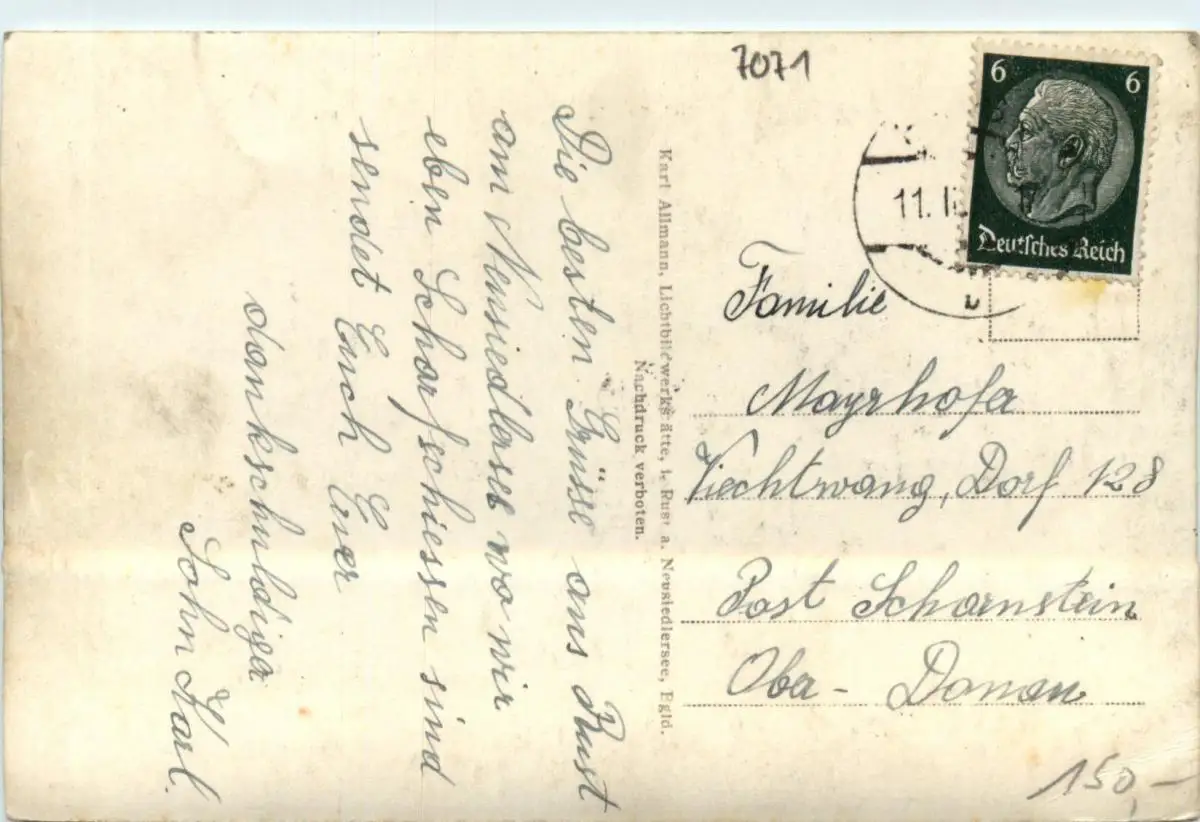 7071
6 6
Deutsches Reich
11. II
b
Die besten Grüsse aus Rust
am Neusiedlasee wo wir
eben Scharfschiessen sind
sendet Euch Euer
dankschuldiga
Sohn Karl.
Karl Allmann, Lichtbildwerkstätte, i. Rust a. Neusiedlersee, Bgld.
Nachdruck verboten.
Familie
Mayrhofer
Viechtwang, Dorf 128
Post Scharnstein
Ober - Donau
150,-